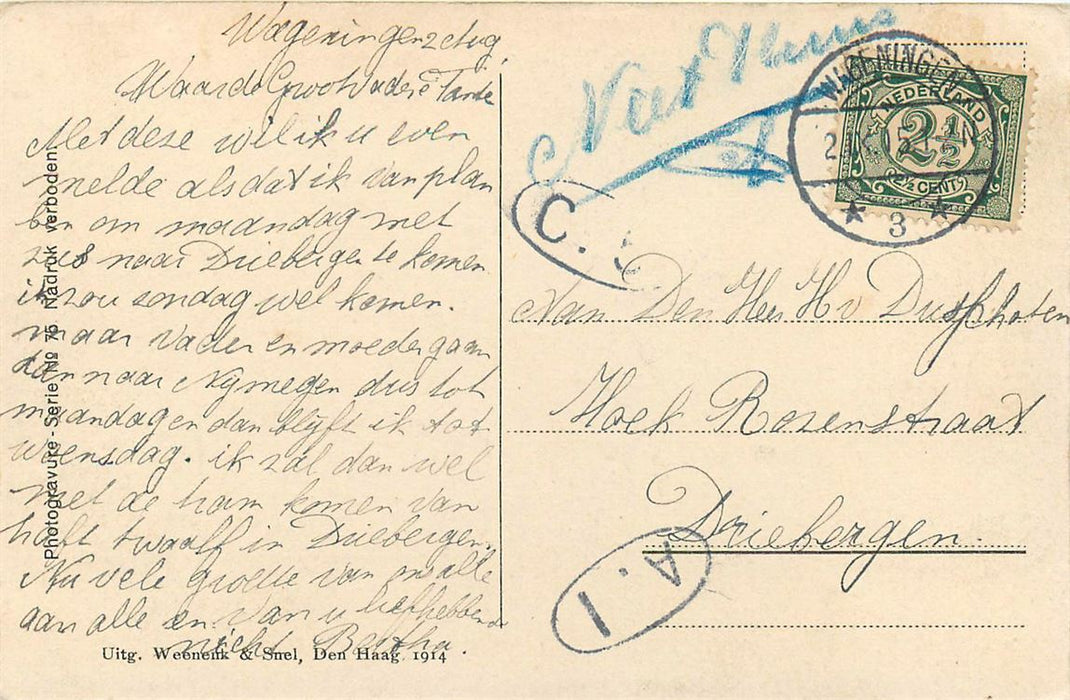 Wageningen 2 Aug
Waarde Grootvader e Tante
Met deze wil ik u even
melde als dat ik van plan
ben om maandag met
zus naar Driebergen te komen
ik zou zondag wel komen.
maar vader en moeder gaan
dan naar Nijmegen dus tot
maandag en dan blijft ik tot
woensdag. ik zal dan wel
met de tram komen van
halft twaalf in Driebergen.
Nu vele groette van ons alle
aan alle en van u liefhebbende
nicht Bertha.
Photogravure - Serie No 75. Nadruk verboden.
Uitg. Weenenk & Snel, Den Haag 1914
Niet Thuis
WAGENINGEN
3
NEDERLAND
2½
(2½ CENT)
C.
Van Den Heer H v Dusschoten
Hoek Rozenstraat
Driebergen.
A. I